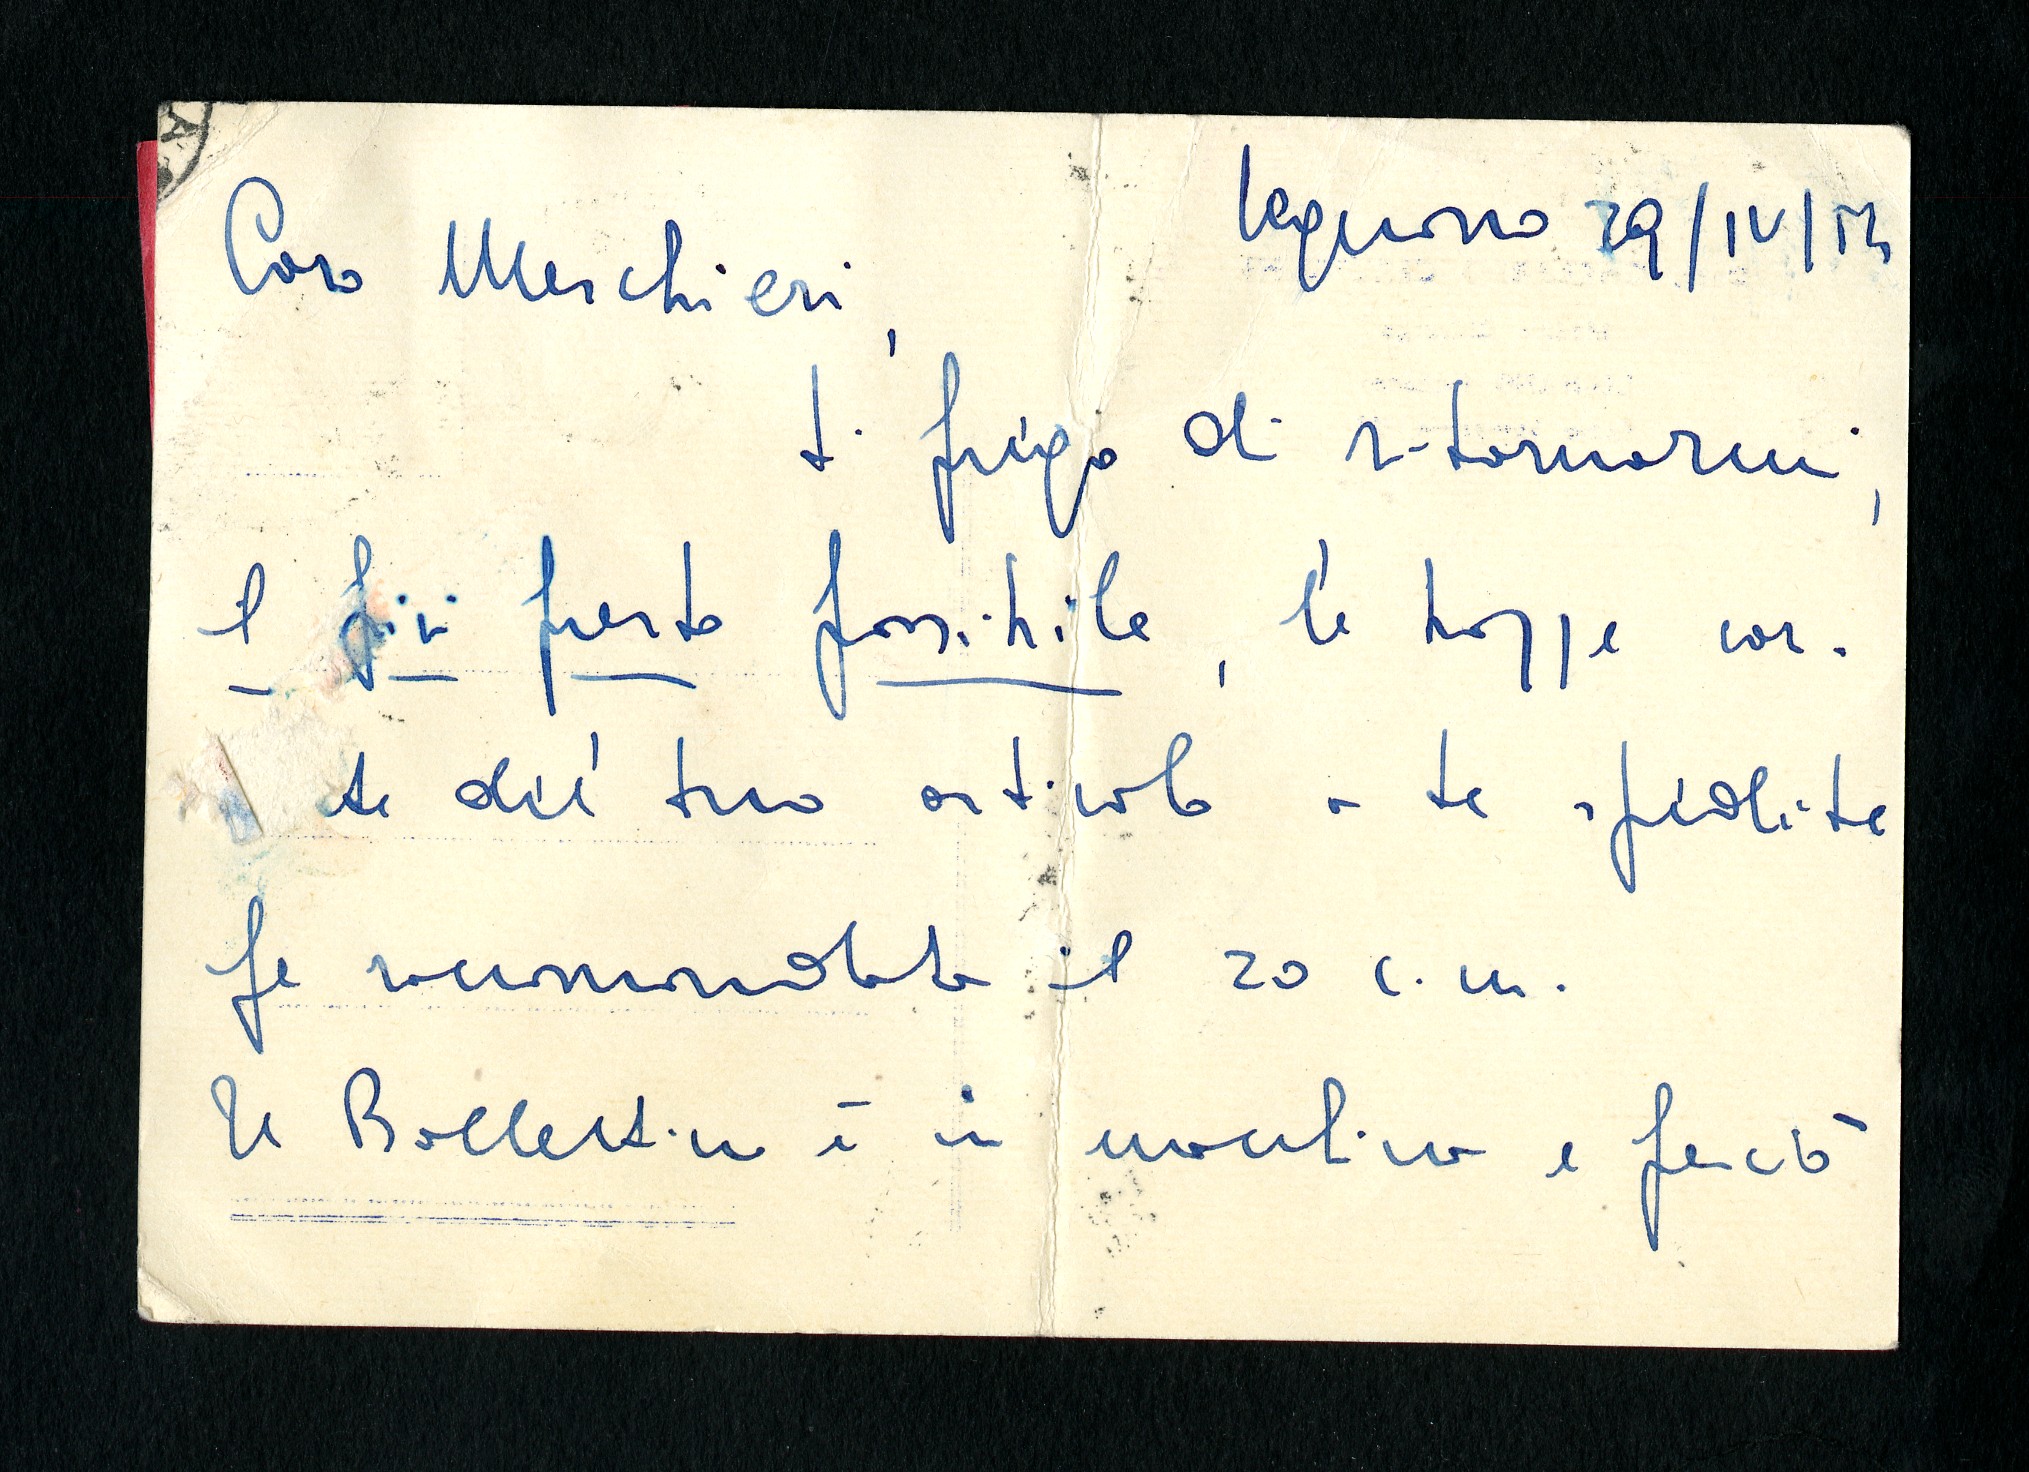 Legnano 29/IV/53
Caro Meschieri,
ti prego di ritornarmi,
il più presto possibile, le bozze cor.
te del tuo articolo a te spedite
pe raccomandata il 20 c.m.
Il Bollettino è in macchina e perciò